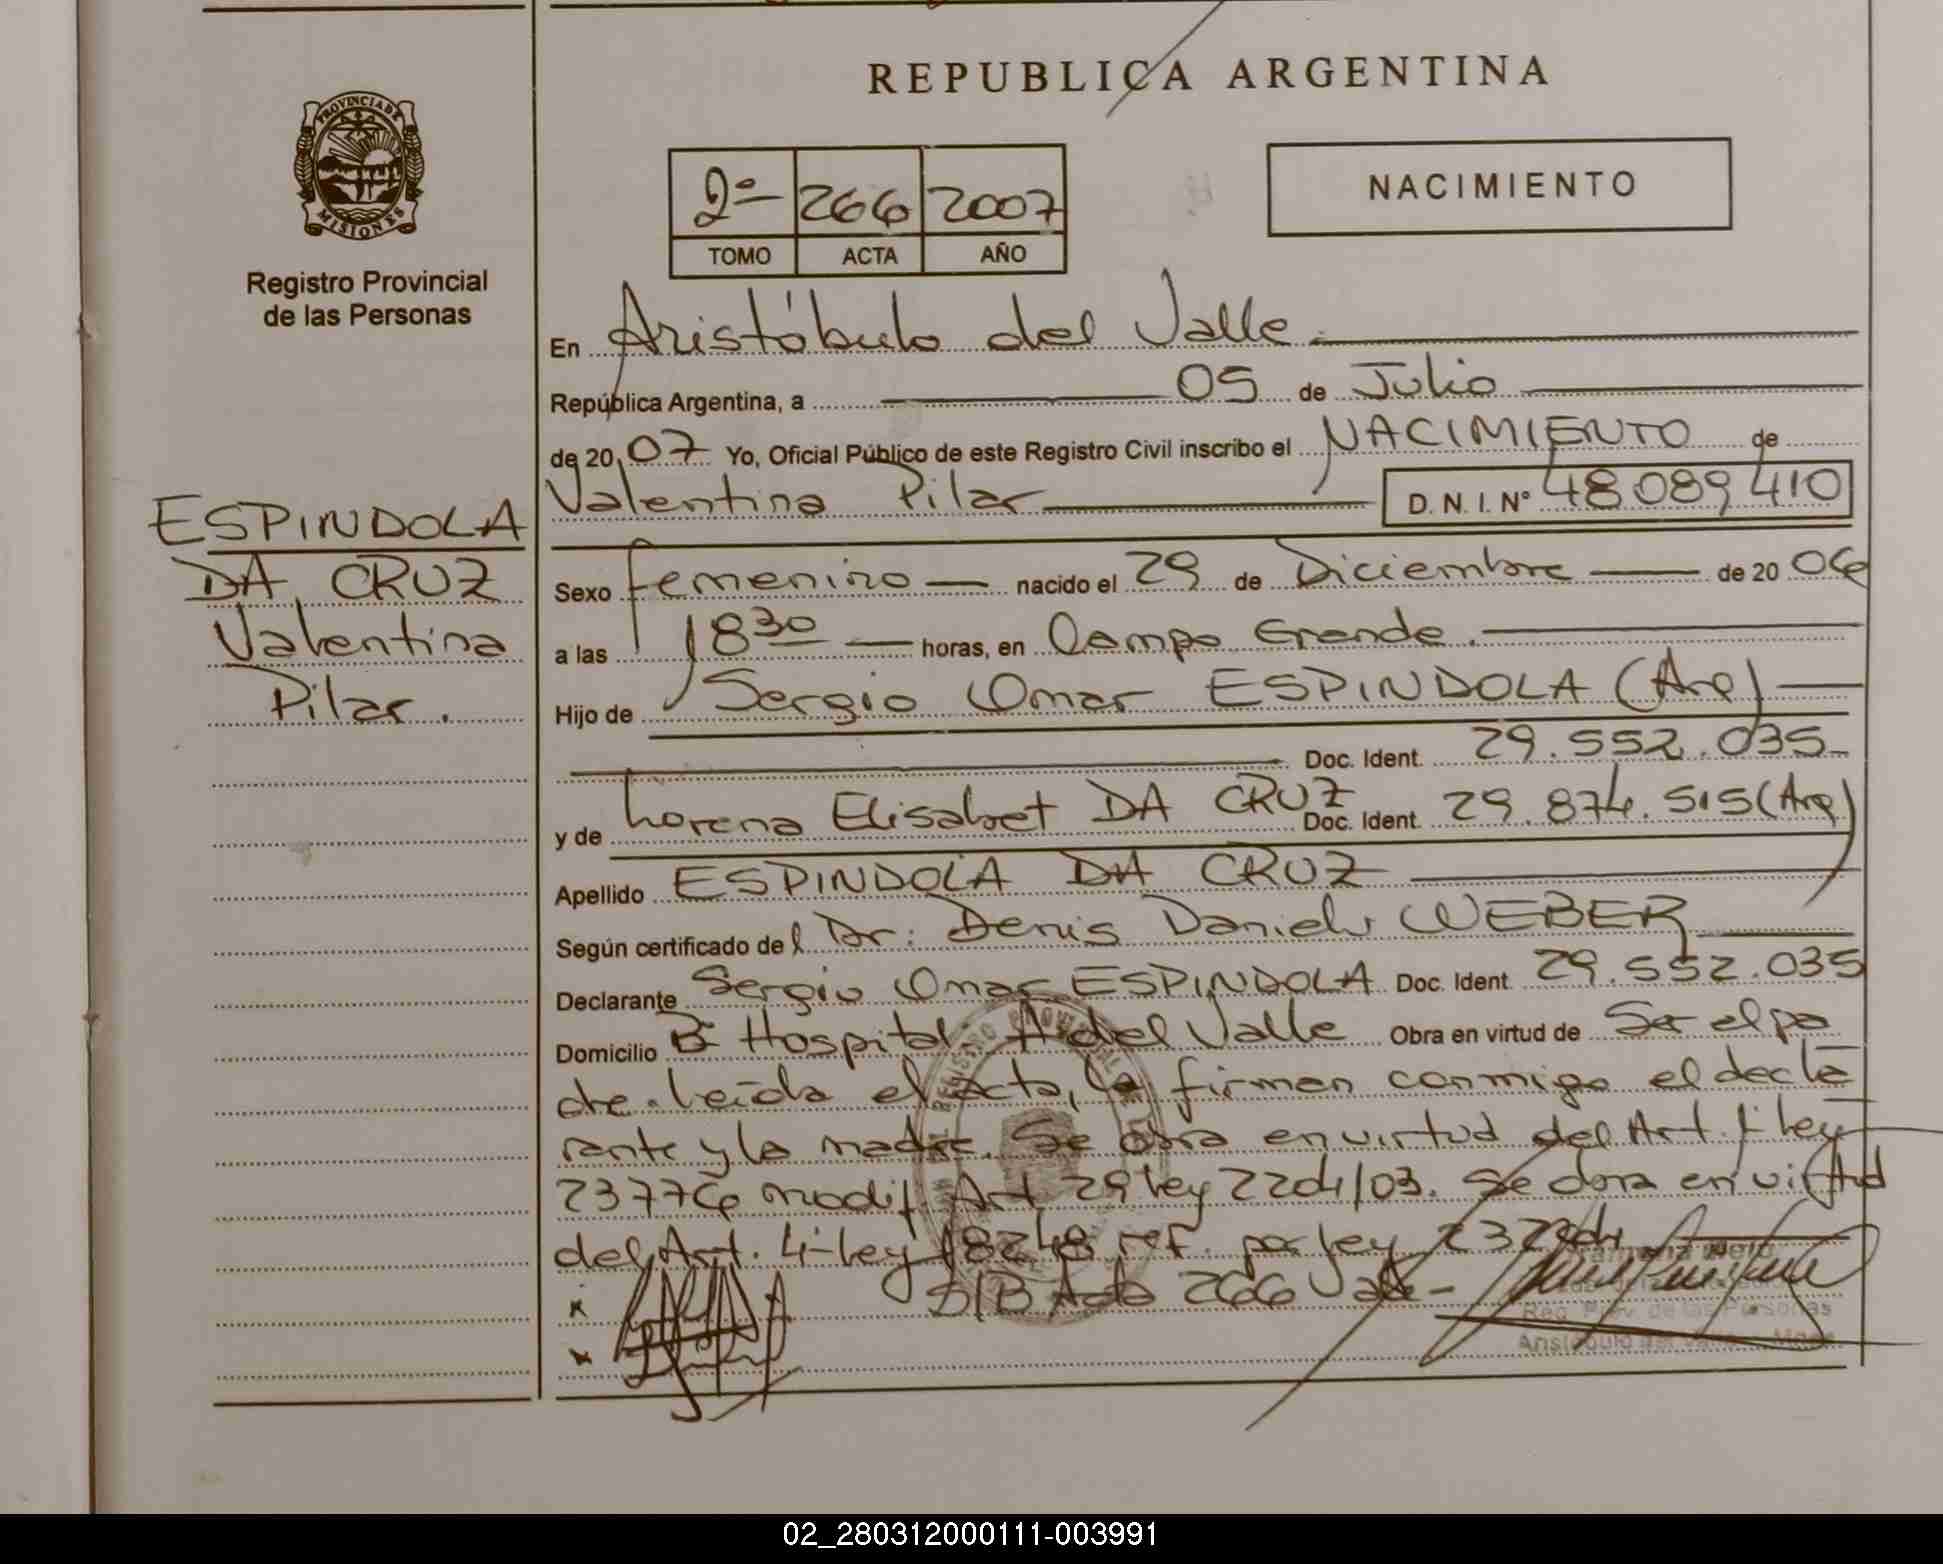 REPUBLICA ARGENTINA
PROVINCIA DE
MISIONES
Registro Provincial
de las Personas
2º 266 2007
TOMO ACTA AÑO
NACIMIENTO
En Aristóbulo del Valle.
República Argentina, a 05 de Julio
de 20 07 Yo, Oficial Público de este Registro Civil inscribo el NACIMIENTO de
Valentina Pilar D. N. I. Nº 48089410
ESPINDOLA
DA CRUZ
Valentina
Pilar.
Sexo femenino nacido el 29 de Diciembre de 20 06
a las 18 30 horas, en Campo Grande.
Hijo de Sergio Omar ESPINDOLA (Arg)
Doc. Ident. 29.552.035
y de Lorena Elisabet DA CRUZ Doc. Ident. 29.874.515 (Arg)
Apellido ESPINDOLA DA CRUZ
Según certificado del Dr: Denis Daniel WEBER
Declarante Sergio Omar ESPINDOLA Doc. Ident. 29.552.035
Domicilio Bº Hospital A del Valle Obra en virtud de Ser el pa
dre. Leída el acta, la firman conmigo el decla
rante y la madre. Se obra en virtud del Art. 1º Ley
23776 modif. Art 29 Ley 2204/03. Se obra en virtud
del Art. 4º Ley 18248 ref. por ley
Acta 266 Vale-
Reg. Prov. de las Personas
Aristóbulo del Valle
02_280312000111-003991